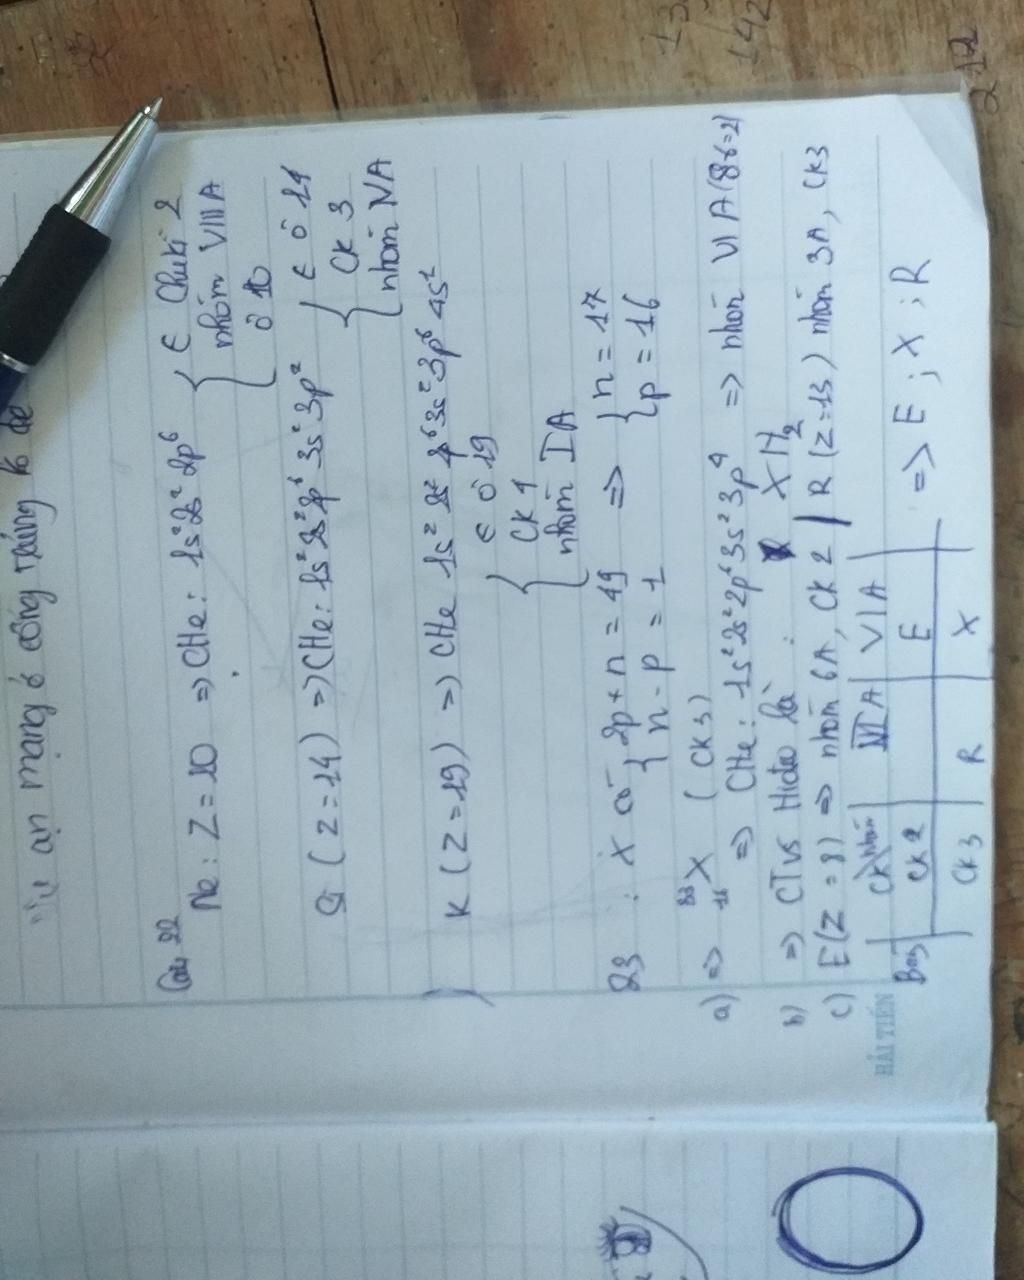 an mạng ở cổng tráng
Câu 22
Ne : Z = 10 => CHe : 1s² 2s² 2p⁶ { ∈ Chu kì 2
nhóm VIIIA
ô 10
Si ( Z = 14 ) => CHe : 1s² 2s² 2p⁶ 3s² 3p² { ∈ ô 14
CK 3
nhóm IVA
K ( Z = 19 ) => CHe 1s² 2s² 2p⁶ 3s² 3p⁶ 4s²
{ ∈ ô 19
CK 4
nhóm IA
23 : X có { 2p + n = 49 => { n = 17
n - p = 1 p = 16
a) => ³³₁₆X ( CK 3 )
=> CHe : 1s² 2s² 2p⁶ 3s² 3p⁴ => nhóm VIA
b) => CT vs Hidro là : XH₂
c) E ( Z = 8 ) => nhóm 6A , CK 2 | R ( Z = 13 ) nhóm 3A , CK3
CK nhóm | IIIA | VIA
CK 2 | E => E ; X ; R
CK 3 | R | X
HẢI TIẾN
13
142
212